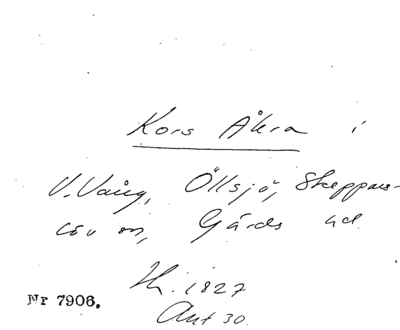 Kors Åkra i
V. Vång, Öllsjö, Skeppars-
löv sn, Gärds hd.
Th. 1827
Ant 30.
Nr 7906.